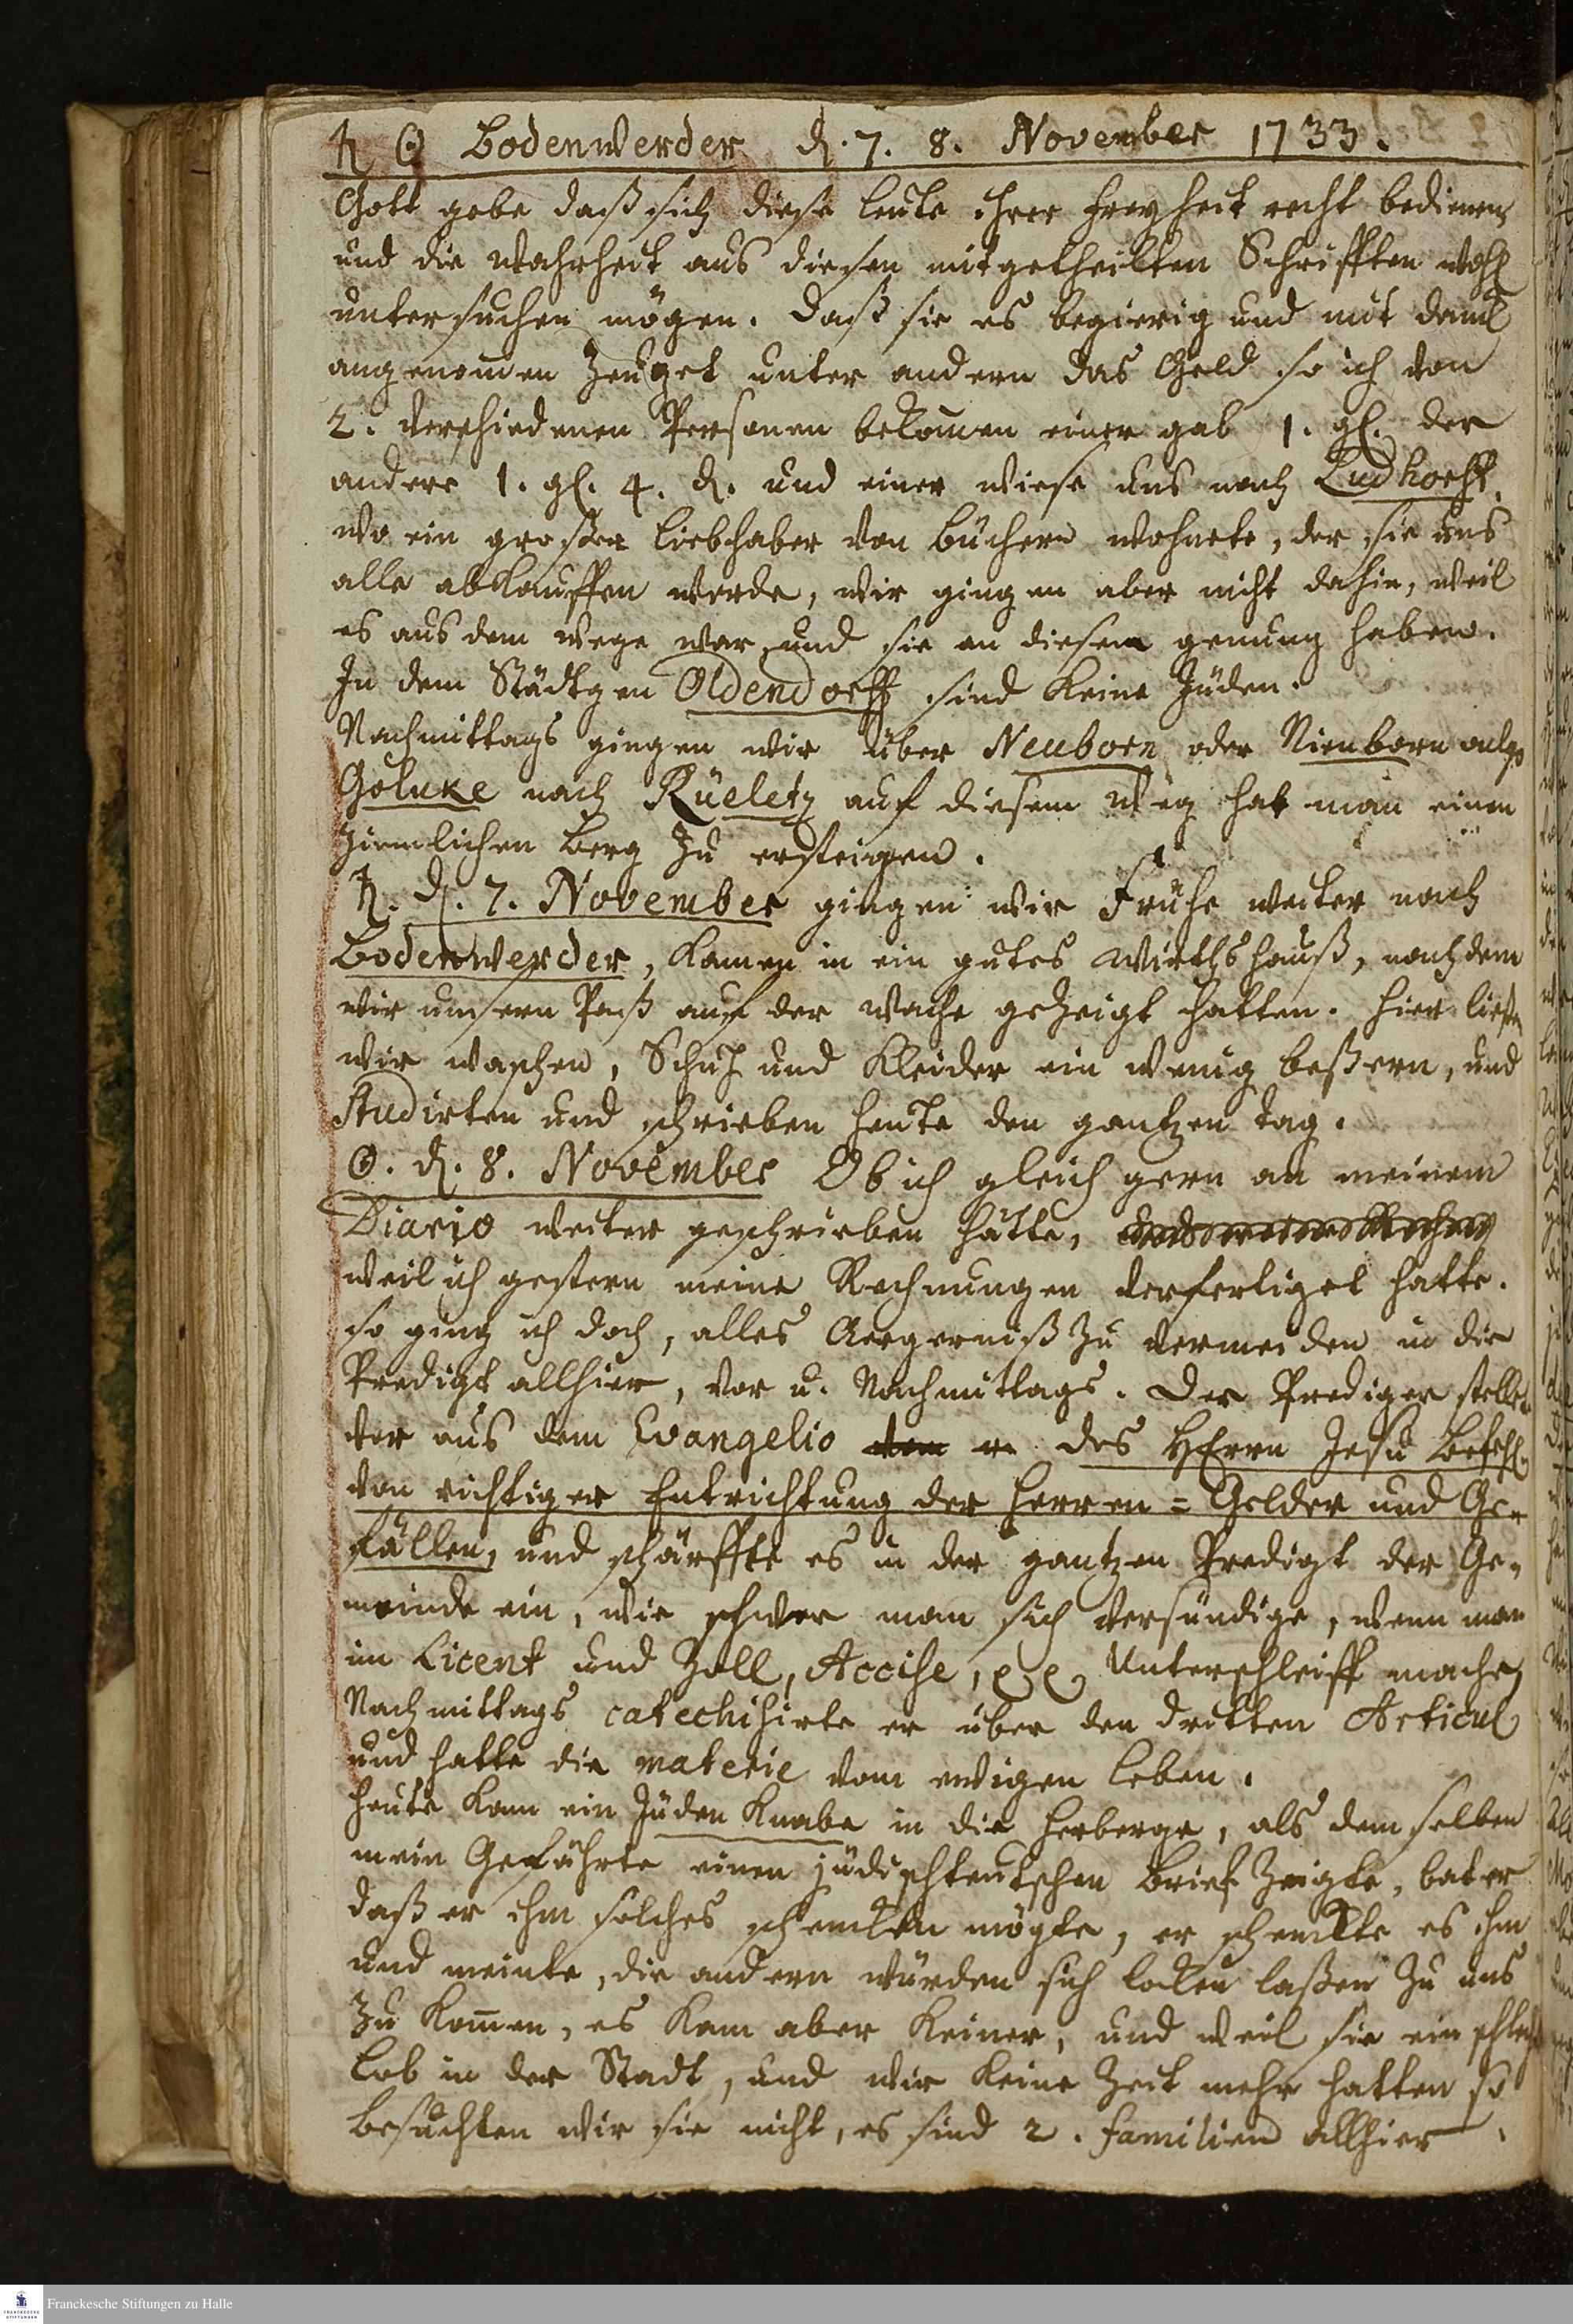 ♄ ☉ Bodenwerder d. 7. 8. November 1733.
Gott gebe daß sich diese Leute ihrer Freyheit recht bedienen
und die Wahrheit aus diesen mitgetheilten Schrifften wohl
untersuchen mögen. Daß sie es begierig und mit danck
angenom̅en zeuget unter andern das Geld so ich von
2. verschiedenen Personen bekom̅en einer gab 1. gl. der
andere 1. gl. 4. d. und einer wiese uns nach Ludhorst,
wo ein großer Liebhaber von Büchern wohnete, der sie uns
alle abkauffen werde, wir gingen aber nicht dahin, weil
es aus dem Wege war, und sie an diesem genung haben.
In dem Städtgen Oldendorff sind keine Juden.
Nachmittags gingen wir über Neuborn oder Nienborn vulgo
Goluke nach Rüeletz auf diesem Weg hat man einen
ziemlichen Berg zu ersteigen.
♄. d. 7. November gingen wir Frühe weiter nach
Bodenwerder, kamen in ein gutes Wirthshauß, nachdem
wir unsern Paß auf der Wache gezeigt hatten. Hier ließen
wir waschen, Schuh und Kleider ein wenig beßern, und
studirten und schrieben heute den gantzen Tag.
☉. d. 8. November Ob ich gleich gern an meinem
Diario weiter geschrieben hätte,
weil ich gestern meine Rechnungen verfertiget hatte.
so ging ich doch, alles Aergerniß zu vermeiden in die
Predigt allhier, vor u. Nachmittags. Der Prediger stellete
vor aus dem Evangelio des HErrn Jesu Befehl
von richtiger Entrichtung der Herren-Gelder und Ge-
fällen, und schärffte es in der gantzen Predigt der Ge-
meinde ein, wie schwer man sich versündige, wenn man
im Licent und Zoll, Accise, Unterschleiff mache,
Nachmittags catechisirte er über den dritten Articul
und hatte die materie vom ewigen Leben.
Heute kam ein Juden Knabe in die Herberge, als demselben
mein Gefährte einen jüdischteutschen Brief zeigte, bat er
daß er ihm solches schencken mögte, er schenckte es ihm
und meinte, die andern würden sich locken laßen zu uns
zu kom̅en, es kam aber keiner, und weil sie ein schlecht
Lob in der Stadt, und wir keine Zeit mehr hatten so
besuchten wir sie nicht, es sind 2. Familien allhier.
Franckesche Stiftungen zu Halle